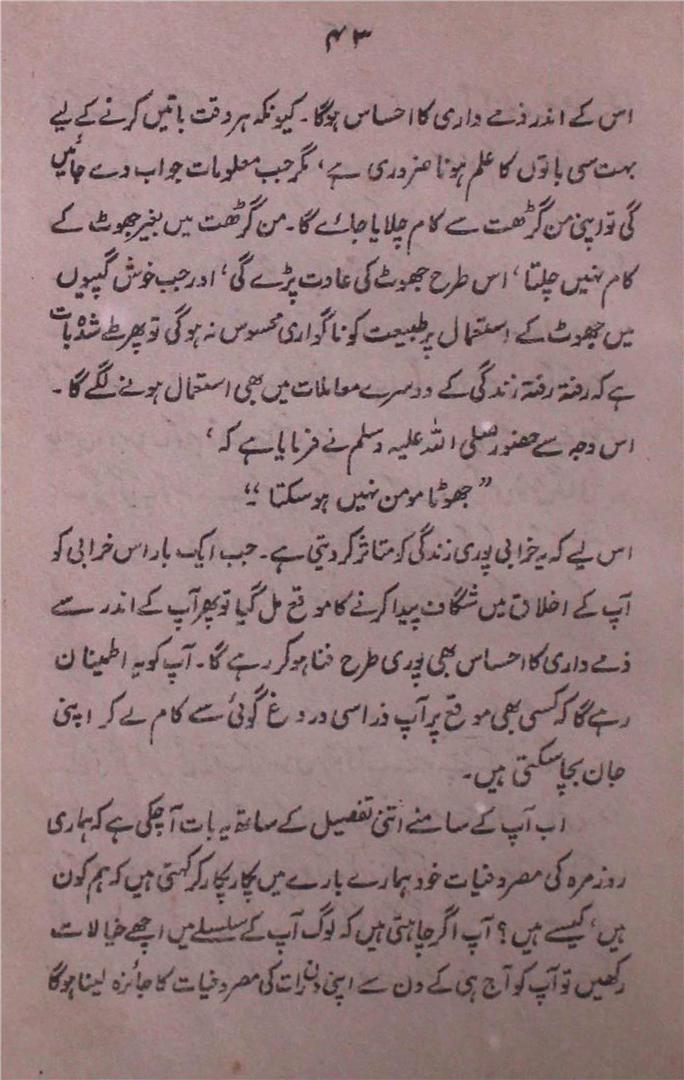 ۴۳
اس کے اندر ذمے داری کا احساس ہوگا۔ کیونکہ ہر وقت باتیں کرنے کے لیے
بہت سی باتوں کا علم ہونا ضروری ہے، مگر جب معلومات جواب دے جائیں
گی تو اپنی من گڑھت سے کام چلایا جائے گا۔ من گڑھت میں بغیر جھوٹ کے
کام نہیں چلتا، اس طرح جھوٹ کی عادت پڑے گی، اور جب خوش گپیوں
میں جھوٹ کے استعمال پر طبیعت کو ناگواری محسوس نہ ہوگی تو پھر طے شدہ بات
ہے کہ رفتہ رفتہ زندگی کے دوسرے معاملات میں بھی استعمال ہونے لگے گا۔
اس وجہ سے حضور صلی اللہ علیہ وسلم نے فرمایا ہے کہ،
”جھوٹا مومن نہیں ہوسکتا“
اس لیے کہ یہ خرابی پوری زندگی کو متاثر کر دیتی ہے۔ جب ایک بار اس خرابی کو
آپ کے اخلاق میں شگاف پیدا کرنے کا موقع مل گیا تو پھر آپ کے اندر سے
ذمے داری کا احساس بھی پوری طرح فنا ہوکر رہے گا۔ آپ کو یہ اطمینان
رہے گا کہ کسی بھی موقع پر آپ ذرا سی دروغ گوئی سے کام لے کر اپنی
جان بچا سکتی ہیں۔
اب آپ کے سامنے اتنی تفصیل کے ساتھ یہ بات آچکی ہے کہ ہماری
روزمرہ کی مصروفیات خود ہمارے بارے میں پکار پکار کر کہتی ہیں کہ ہم کون
ہیں، کیسے ہیں؟ آپ اگر چاہتی ہیں کہ لوگ آپ کے سلسلے میں اچھے خیالات
رکھیں تو آپ کو آج ہی کے دن سے اپنی دن رات کی مصروفیات کا جائزہ لینا ہوگا